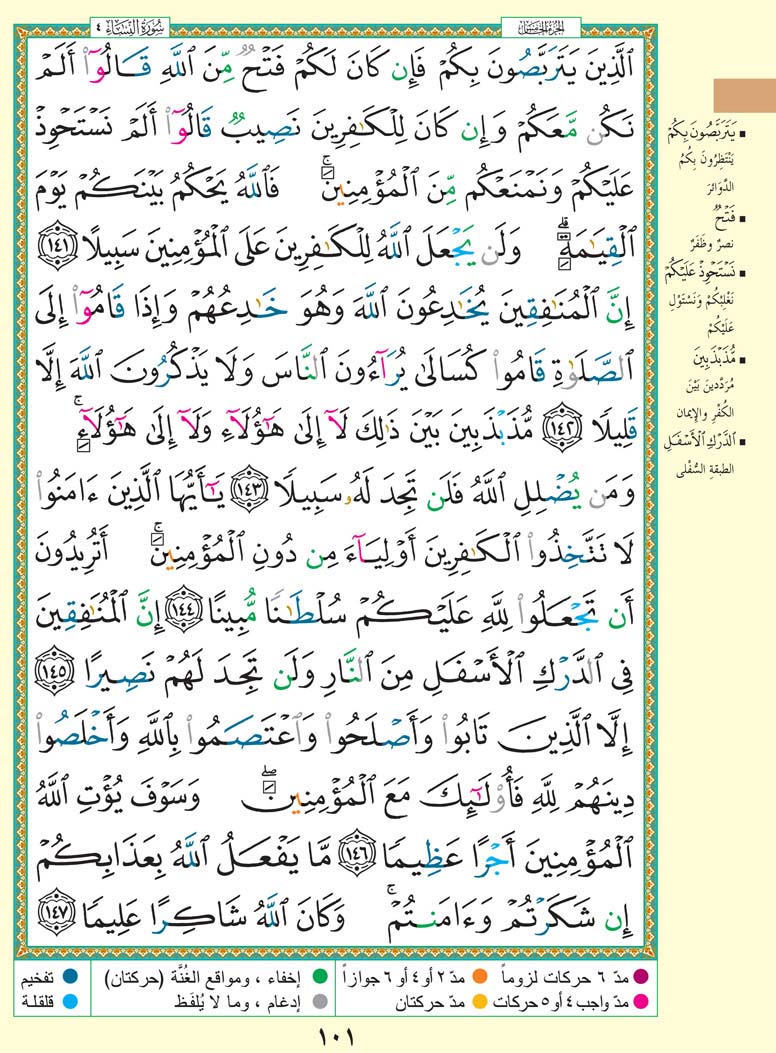 الجزء الخامس
سُورَةُ النِّسَاءِ ٤
ٱلَّذِينَ يَتَرَبَّصُونَ بِكُمْ فَإِن كَانَ لَكُمْ فَتْحٌ مِّنَ ٱللَّهِ قَالُوٓا۟ أَلَمْ
نَكُن مَّعَكُمْ وَإِن كَانَ لِلْكَٰفِرِينَ نَصِيبٌ قَالُوٓا۟ أَلَمْ نَسْتَحْوِذْ
عَلَيْكُمْ وَنَمْنَعْكُم مِّنَ ٱلْمُؤْمِنِينَ ۚ فَٱللَّهُ يَحْكُمُ بَيْنَكُمْ يَوْمَ
ٱلْقِيَٰمَةِ ۗ وَلَن يَجْعَلَ ٱللَّهُ لِلْكَٰفِرِينَ عَلَى ٱلْمُؤْمِنِينَ سَبِيلًا ١٤١
إِنَّ ٱلْمُنَٰفِقِينَ يُخَٰدِعُونَ ٱللَّهَ وَهُوَ خَٰدِعُهُمْ وَإِذَا قَامُوٓا۟ إِلَى
ٱلصَّلَوٰةِ قَامُوا۟ كُسَالَىٰ يُرَآءُونَ ٱلنَّاسَ وَلَا يَذْكُرُونَ ٱللَّهَ إِلَّا
قَلِيلًا ١٤٢ مُّذَبْذَبِينَ بَيْنَ ذَٰلِكَ لَآ إِلَىٰ هَٰٓؤُلَآءِ وَلَآ إِلَىٰ هَٰٓؤُلَآءِ ۚ
وَمَن يُضْلِلِ ٱللَّهُ فَلَن تَجِدَ لَهُۥ سَبِيلًا ١٤٣ يَٰٓأَيُّهَا ٱلَّذِينَ ءَامَنُوا۟
لَا تَتَّخِذُوا۟ ٱلْكَٰفِرِينَ أَوْلِيَآءَ مِن دُونِ ٱلْمُؤْمِنِينَ ۚ أَتُرِيدُونَ
أَن تَجْعَلُوا۟ لِلَّهِ عَلَيْكُمْ سُلْطَٰنًا مُّبِينًا ١٤٤ إِنَّ ٱلْمُنَٰفِقِينَ
فِى ٱلدَّرْكِ ٱلْأَسْفَلِ مِنَ ٱلنَّارِ وَلَن تَجِدَ لَهُمْ نَصِيرًا ١٤٥
إِلَّا ٱلَّذِينَ تَابُوا۟ وَأَصْلَحُوا۟ وَٱعْتَصَمُوا۟ بِٱللَّهِ وَأَخْلَصُوا۟
دِينَهُمْ لِلَّهِ فَأُو۟لَٰٓئِكَ مَعَ ٱلْمُؤْمِنِينَ ۖ وَسَوْفَ يُؤْتِ ٱللَّهُ
ٱلْمُؤْمِنِينَ أَجْرًا عَظِيمًا ١٤٦ مَّا يَفْعَلُ ٱللَّهُ بِعَذَابِكُمْ
إِن شَكَرْتُمْ وَءَامَنتُمْ ۚ وَكَانَ ٱللَّهُ شَاكِرًا عَلِيمًا ١٤٧
▪ يَتَرَبَّصُونَ بِكُمْ
يَنْتَظِرُونَ بِكُمُ
الدَّوَائرَ
▪ فَتْحٌ
نصرٌ وظَفَرٌ
▪ نَسْتَحْوِذْ عَلَيْكُمْ
نَغْلِبْكُمْ ونَسْتَوْلِ
عَلَيْكُمْ
▪ مُّذَبْذَبِينَ
مُرَدَّدينَ بَيْنَ
الكُفْرِ والإيمان
▪ ٱلدَّرْكِ ٱلْأَسْفَلِ
الطبقةِ السُّفْلى
مدّ ٦ حركات لزوماً
مدّ ٢ أو ٤ أو ٦ جوازاً
إخفاء ، ومواقع الغُنَّة (حركتان)
تفخيم
مدّ واجب ٤ أو ٥ حركات
مدّ حركتان
إدغام ، وما لا يُلفَظ
قلقلة
١٠١